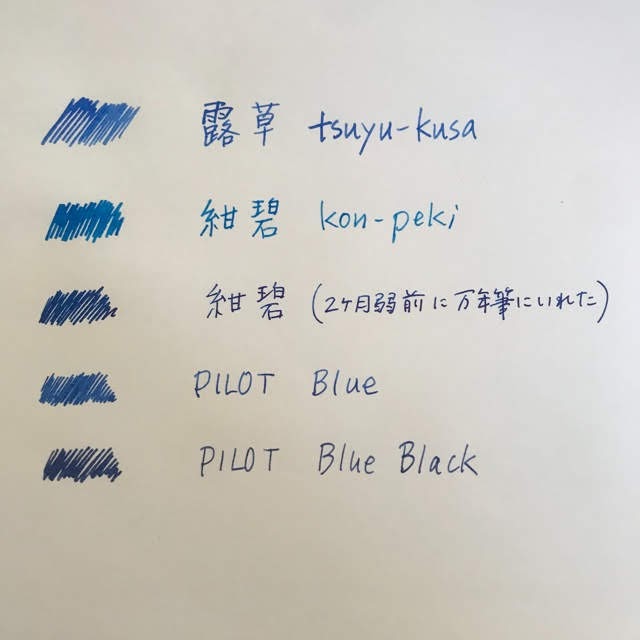 露草 tsuyu-kusa
紺碧 kon-peki
紺碧 (2ヶ月弱前に万年筆にいれた)
PILOT Blue
PILOT Blue Black